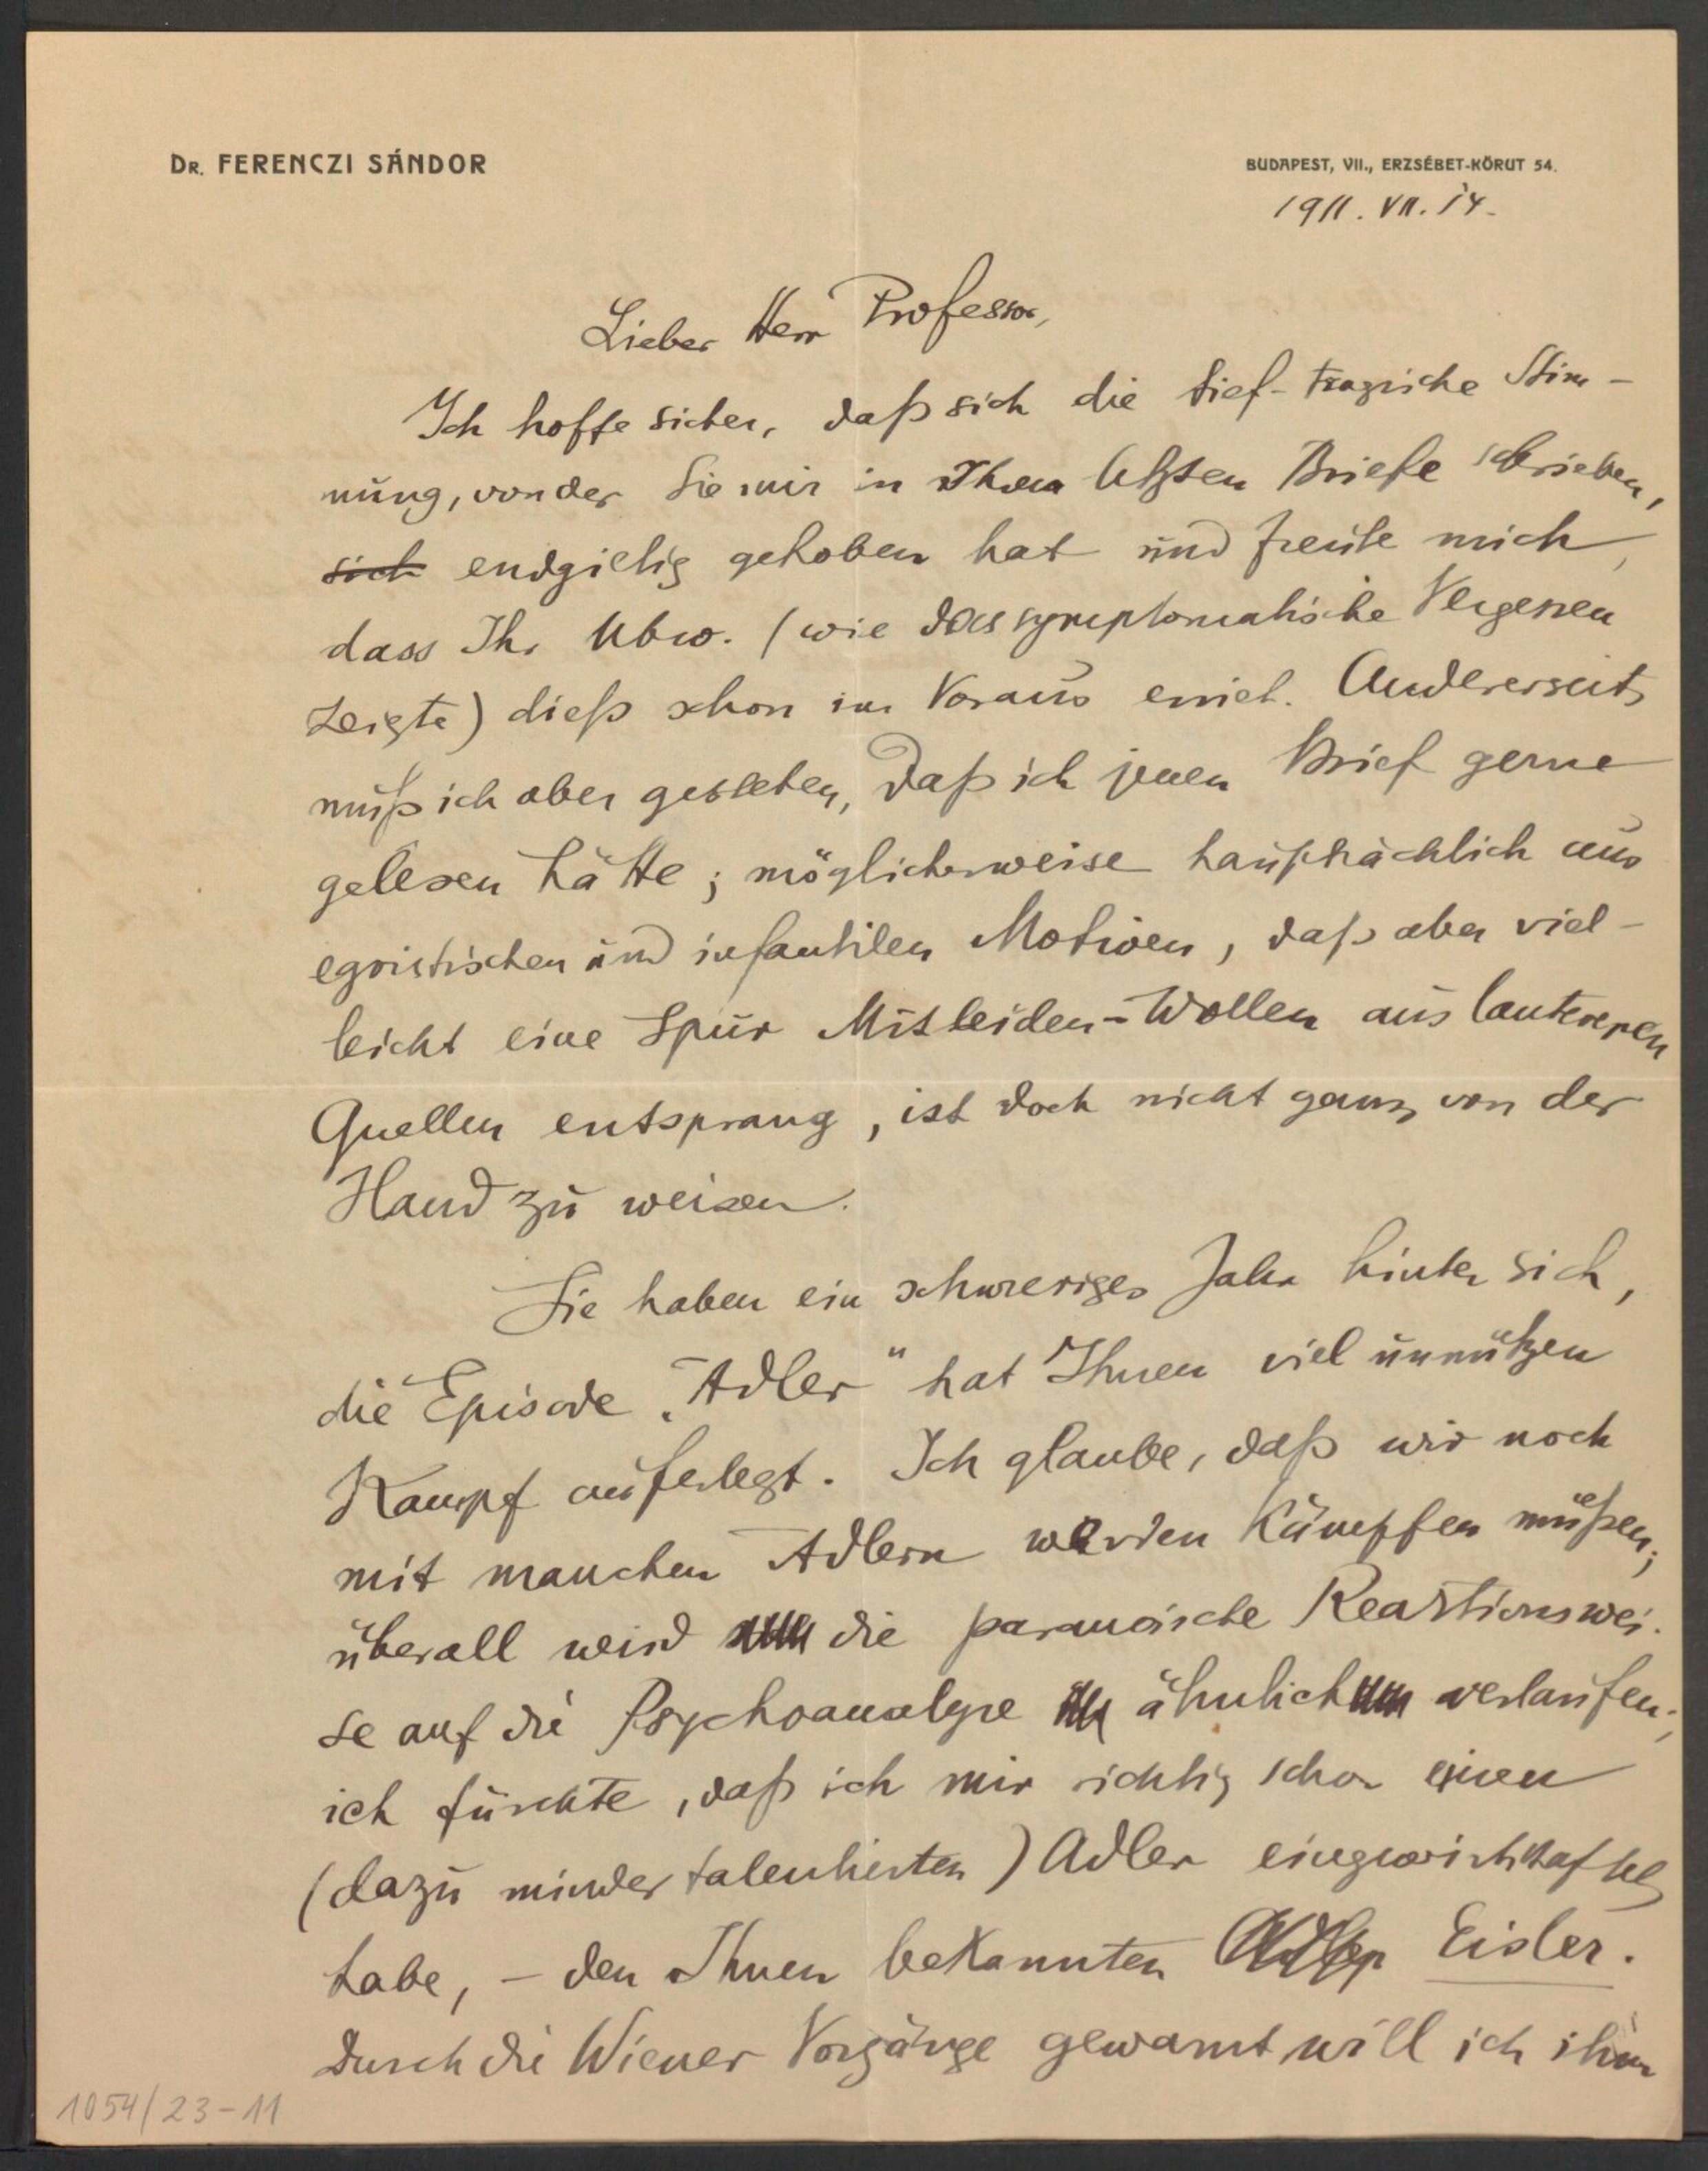 DR. FERENCZI SÁNDOR
BUDAPEST, VII., ERZSÉBET-KÖRUT 54.
1911. VII. 14.
Lieber Herr Professor,
Ich hoffe sicher, daß sich die tief-tragische Stim-
mung, von der Sie mir in Ihrem letzten Briefe schrieben,
sich endgiltig gehoben hat und freute mich,
dass Ihr Ubw. (wie das symptomatische Vergessen
zeigte) dieß schon im Voraus erriet. Andererseits
muß ich aber gestehen, daß ich jenen Brief gerne
gelesen hätte; möglicherweise hauptsächlich aus
egoistischen und infantilen Motiven, daß aber viel-
leicht eine Spur Mitleiden-Wollen aus lauteren
Quellen entsprang, ist doch nicht ganz von der
Hand zu weisen.
Sie haben ein schwieriges Jahr hinter sich,
die Episode „Adler“ hat Ihnen viel unnützen
Kampf auferlegt. Ich glaube, daß wir noch
mit manchen Adlern werden kämpfen müßen;
überall wird die paranoische Reaktionswei-
se auf die Psychoanalyse ähnlich verlaufen;
ich fürchte, daß ich mir richtig schon einen
(dazu minder talentierten) Adler eingewirtschaftet
habe, – den Ihnen bekannten Adler Eisler.
Durch die Wiener Vorgänge gewarnt will ich ihm
1054/23-11